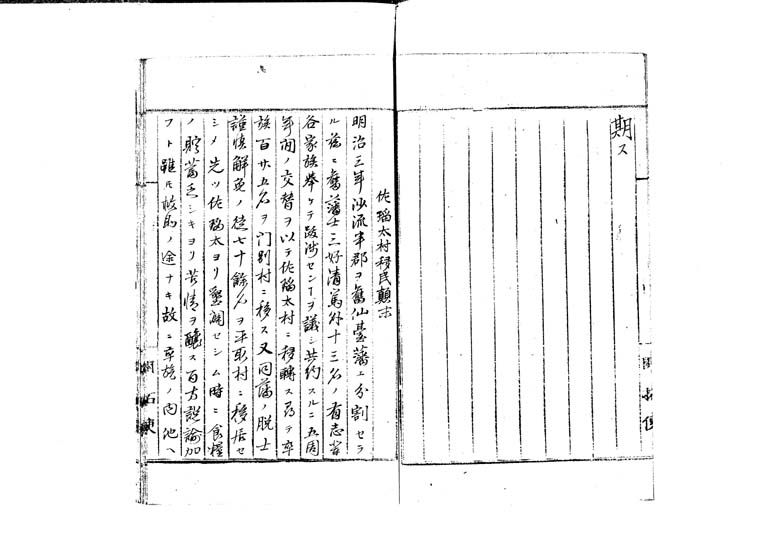 期ス
佐瑠太村移民顛末
明治三年沙流半郡ヲ舊仙臺藩ニ分割セラ
ル茲ニ舊藩士三好清篤外十三名ノ有志者
各家族挙ケテ跋渉セン丅ヲ議シ共約スルニ五周
年間ノ交替ヲ以テ佐瑠太村ニ移轉ス尋テ卒
族百廿五名ヲ門別村ニ移ス又同藩ノ脱士
謹慎解免ノ徒七十餘名ヲ平取村ニ移居セ
シメ先ツ佐瑠太ヨリ墾開セシム時ニ食糧
ノ貯蓄乏シキヨリ苦情ヲ醸ス百方説諭加
フト雖モ ノ途ナキ故ニ卒族ノ内他ヘ
開拓使
開拓使